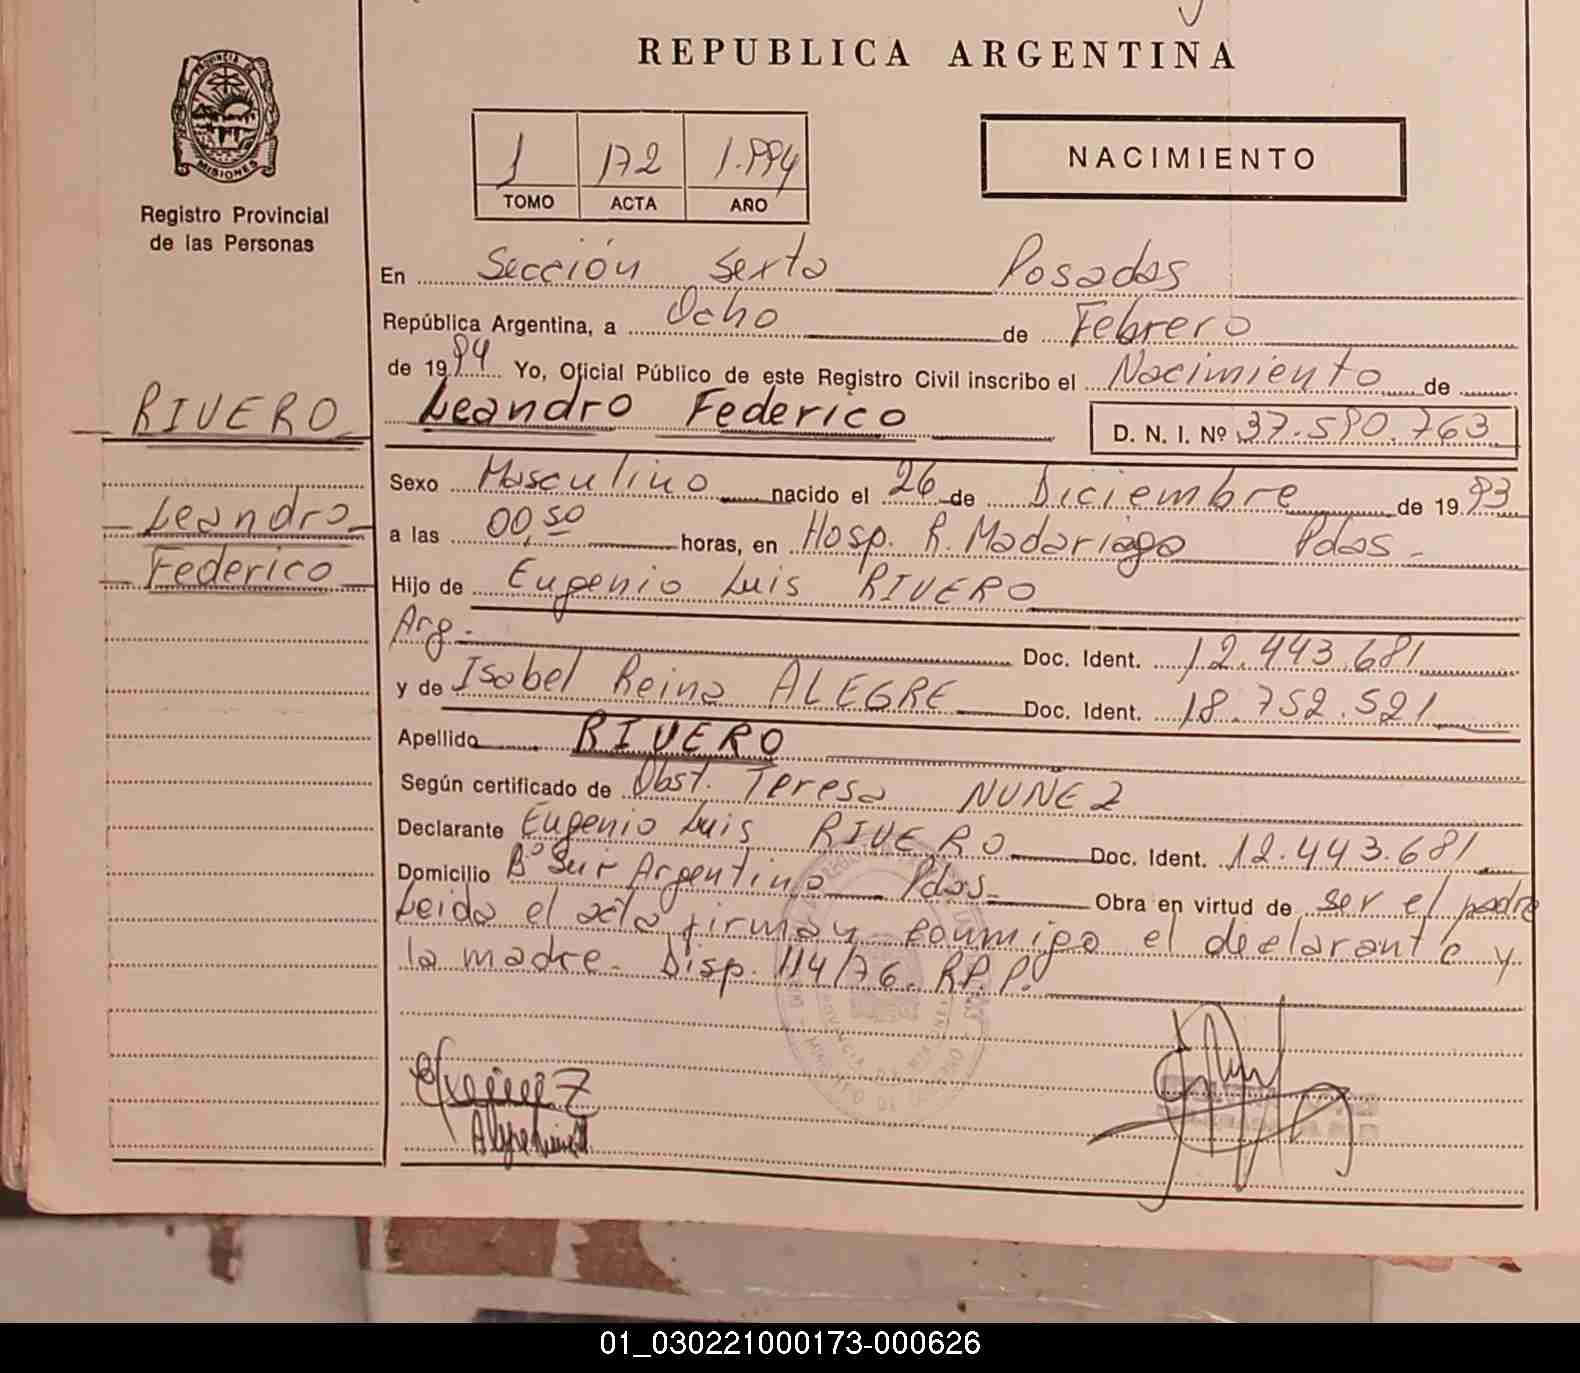 REPUBLICA ARGENTINA
PROVINCIA DE
MISIONES
Registro Provincial
de las Personas
1 172 1.994
TOMO ACTA AÑO
NACIMIENTO
En Sección Sexta Posadas
República Argentina, a Ocho de Febrero
de 1994 Yo, Oficial Público de este Registro Civil inscribo el Nacimiento de
RIVERO
Leandro Federico D. N. I. Nº 37.590.763
Leandro
Federico
Sexo Masculino nacido el 26 de Diciembre de 1993
a las 00,50 horas, en Hosp. R. Madariaga Pdas.
Hijo de Eugenio Luis RIVERO
Arg. Doc. Ident. 12.443.681
y de Isabel Reina ALEGRE Doc. Ident. 18.752.521
Apellido RIVERO
Según certificado de Obst. Teresa NUÑEZ
Declarante Eugenio Luis RIVERO Doc. Ident. 12.443.681
Domicilio Bº Sur Argentino Pdas. Obra en virtud de ser el padre
Leida el acta firman conmigo el declarante y
la madre. Disp. 114/76. R.P.P.
01_030221000173-000626